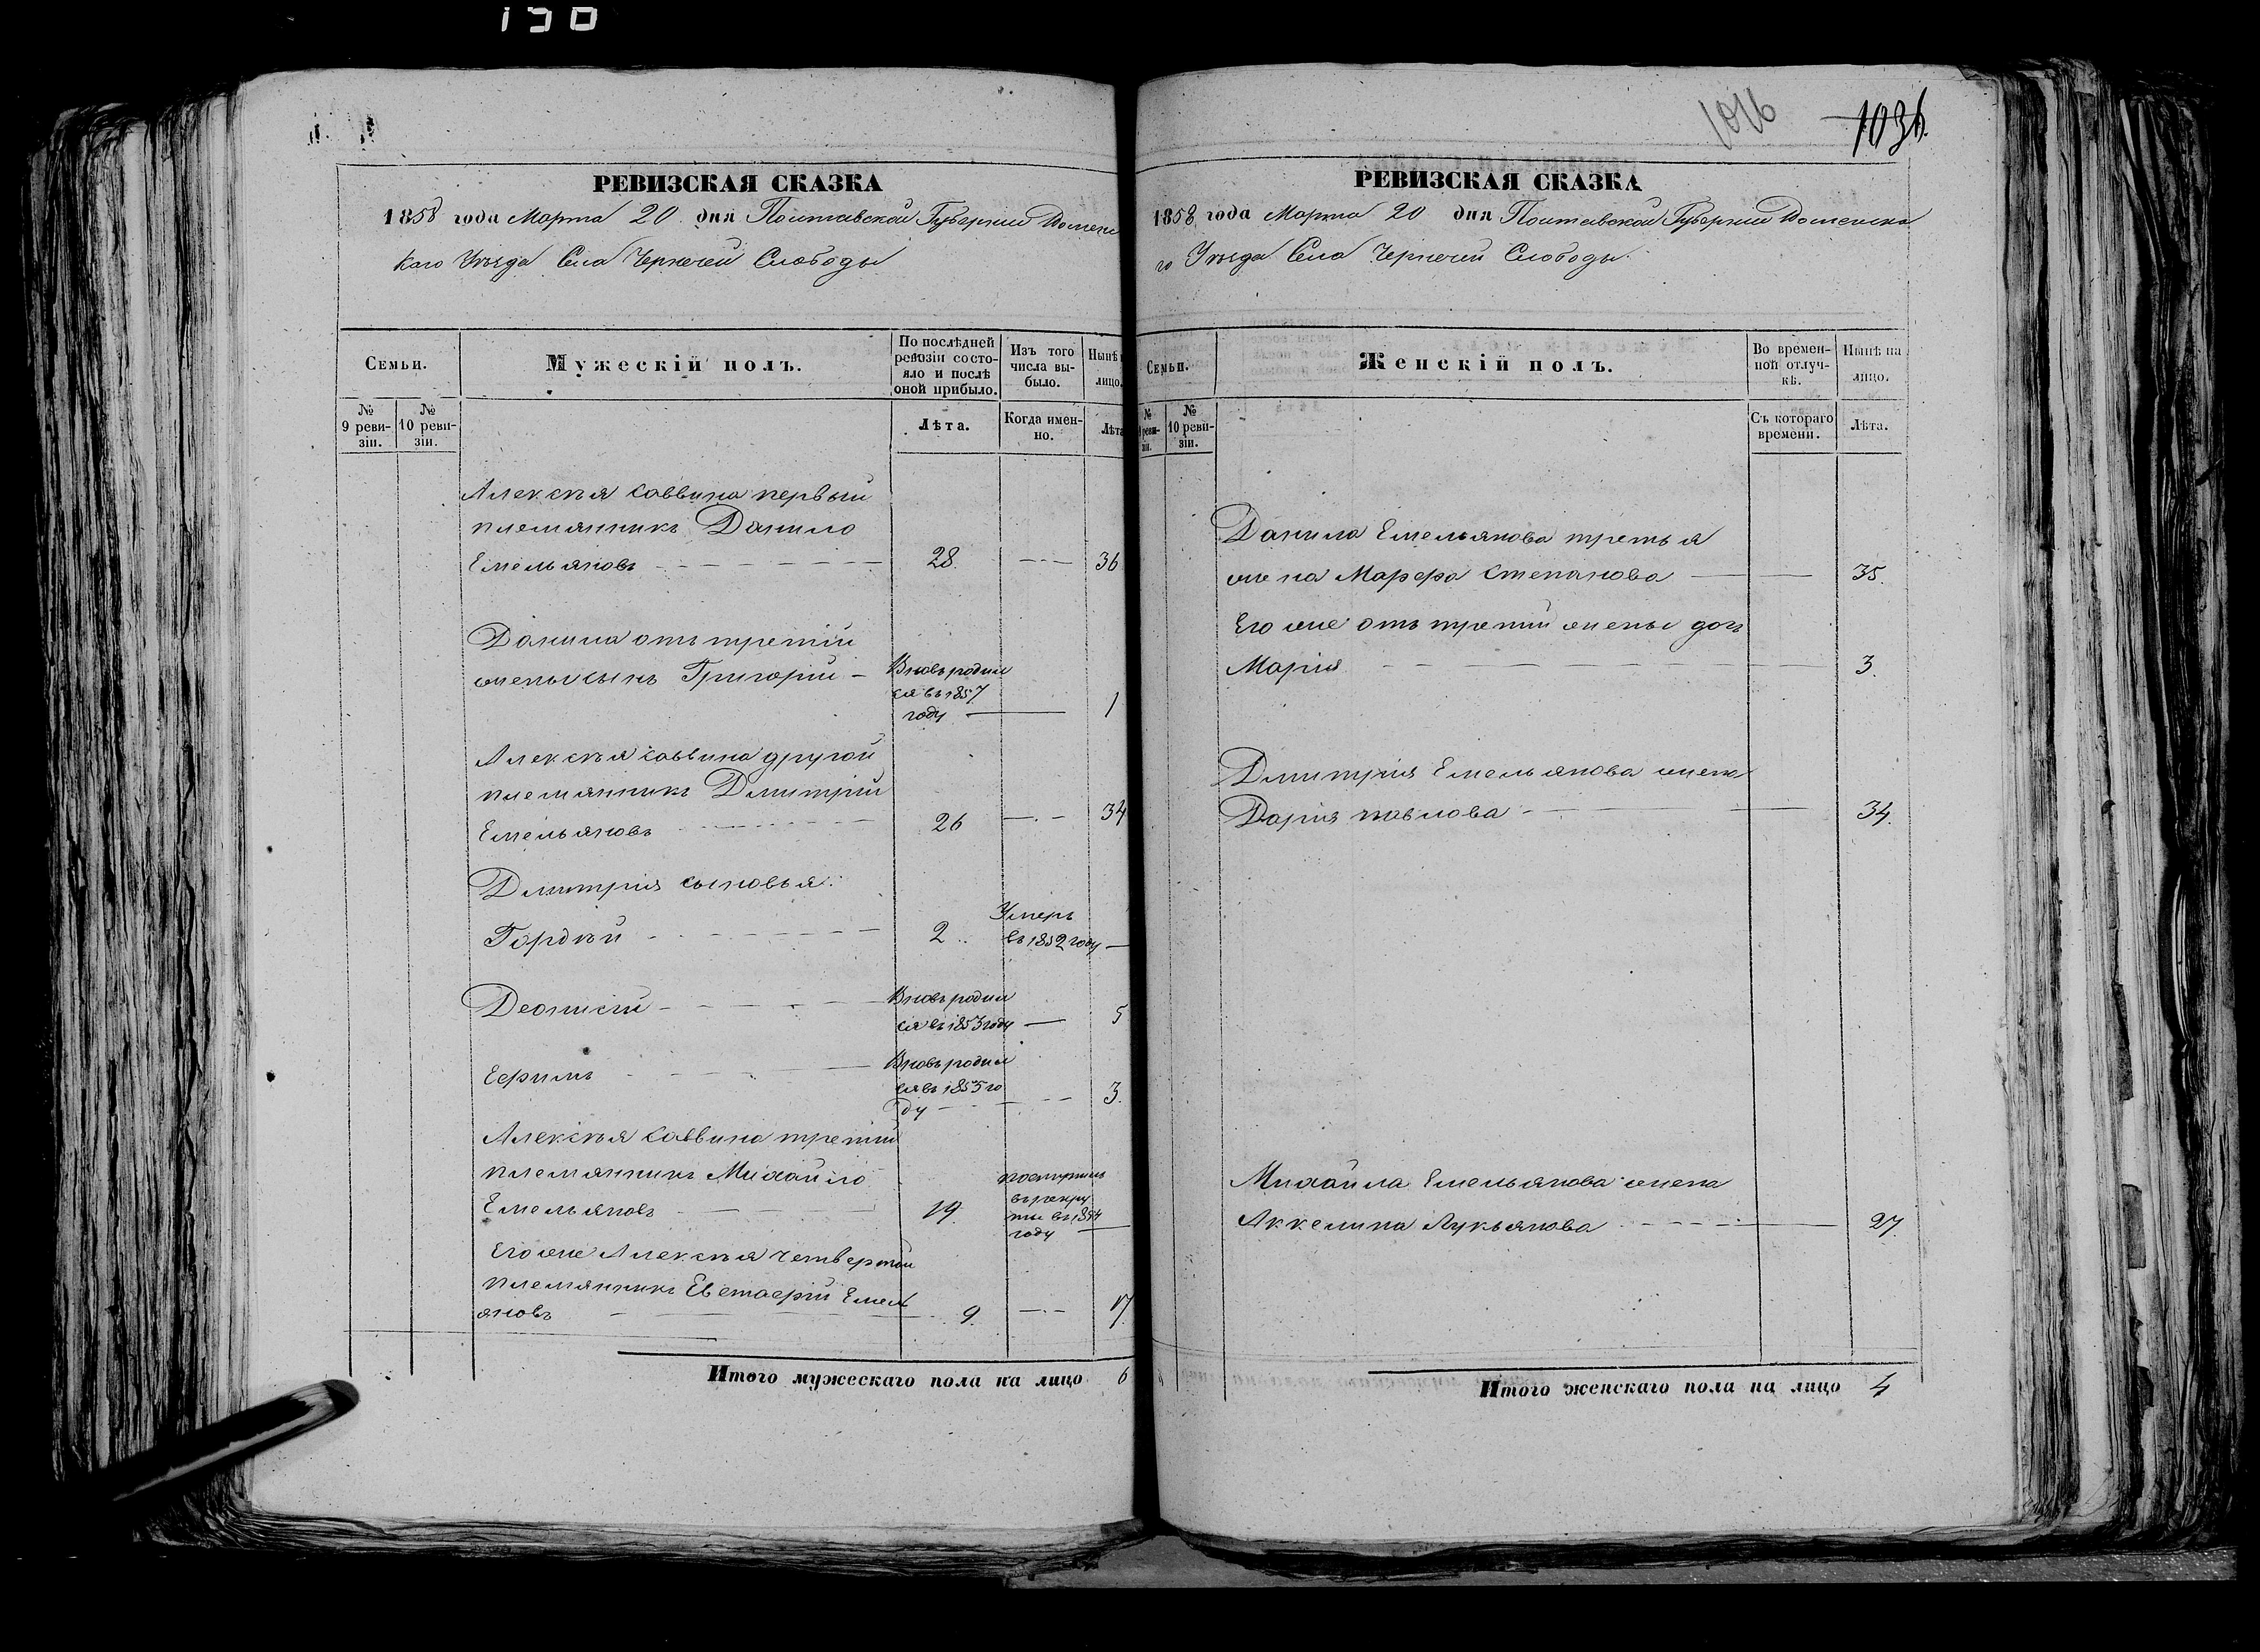 130
РЕВИЗСКАЯ СКАЗКА
1858 года Марта 20 дня Полтавской Губернии Роменс
каго Уѣзда Села Чернечей Слободы
Семьи.
Мужескій полъ.
По послѣдней ревизіи состояло и послѣ оной прибыло.
Изъ того числа выбыло.
Нынѣ
лицо.
№ 9 ревизіи.
№ 10 ревизіи.
Лѣта.
Когда именно.
Лѣта
Алексѣя Саввина первый
племянникъ Данило
Емельяновъ 28. 36
Данила отъ третій
жены сынъ Григорій Вновь родил
ся въ 1857
году 1
Алексѣя Саввина другой
племянникъ Дмитрій
Емельяновъ 26 34
Дмитрія сыновья:
Гордѣй 2 Умеръ
въ 1852 году
Деонисій Вновь родил
ся въ 1853 году 5
Ефимъ Вновь родил
ся въ 1855 го
ду 3.
Алексѣя Саввина третій
племянникъ Михайло
Емельяновъ 19. поступилъ
въ рекру
ты въ 1854
году
Его же Алексѣя Четвертой
племянникъ Евстафій Емель
яновъ 9. 17
Итого мужескаго пола на лицо 6
1016
1036.
РЕВИЗСКАЯ СКАЗКА
1858 года Марта 20 дня Полтавской Губернии Роменска
го Уѣзда Села Чернечей Слободы.
Семьи.
Женскій полъ.
Во временной отлучкѣ.
Нынѣ на лицо.
№ 9 ревизіи.
№ 10 ревизіи.
Съ котораго времени.
Лѣта.
Данила Емельянова третья
жена Марфа Степанова 35.
Его же отъ третій жены дочь
Марія 3.
Дмитрія Емельянова жена
Дарія Павлова 34.
Михайла Емельянова жена
Аккелина Лукьянова 27.
Итого женскаго пола на лицо 4